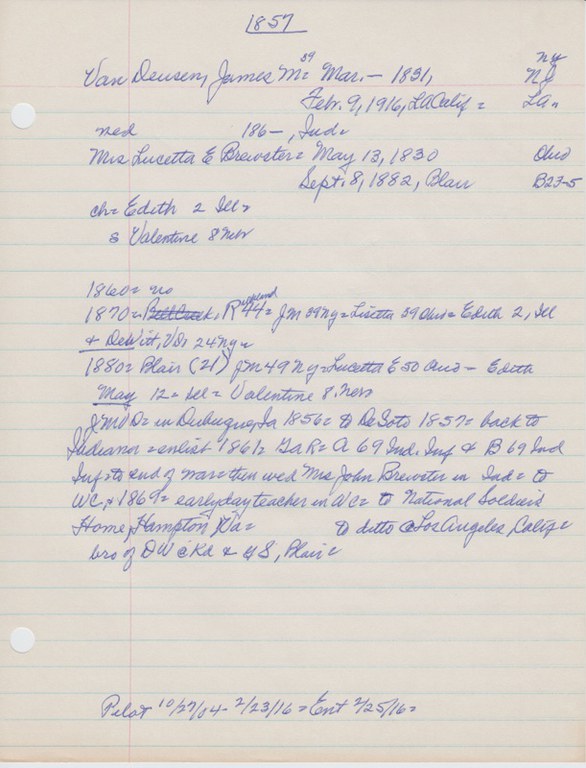 1857
Van Deusen, James M = Mar. - 1831, NY
39
Feb. 9, 1916, LA Calif = LA =
wed 186-, Ind =
Mrs Lucetta E Brewster = May 13, 1830 Ohio
Sept. 8, 1882, Blair B23-5
ch = Edith 2 Ill =
s Valentine 8 Neb
1860 = no
1870 = R 44 = J M 39 NY = Lisetta 39 Ohio = Edith 2, Ill
& DeWitt, VD, 24 NY =
1880 = Blair (21) J M 49 NY = Lucetta E 50 Ohio - Edith
May 12 = Ill = Valentine 8, Neb
JMVD = in Dubuque, Ia 1856 = to DeSoto 1857 = back to
Indiana = enlist 1861 = GaR = A 69 Ind. Inf & B 69 Ind
Inf = to end of war = then wed Mrs John Brewster in Ind = to
WC, 1869 = early day teacher in WC = to National Soldiers
Home, Hampton, Va = to ditto @ Los Angeles, Calif =
bro of DW @ Kd & GS, Blair =
Pilot 10/27/04 - 2/23/16 = Ent 2/25/16 =